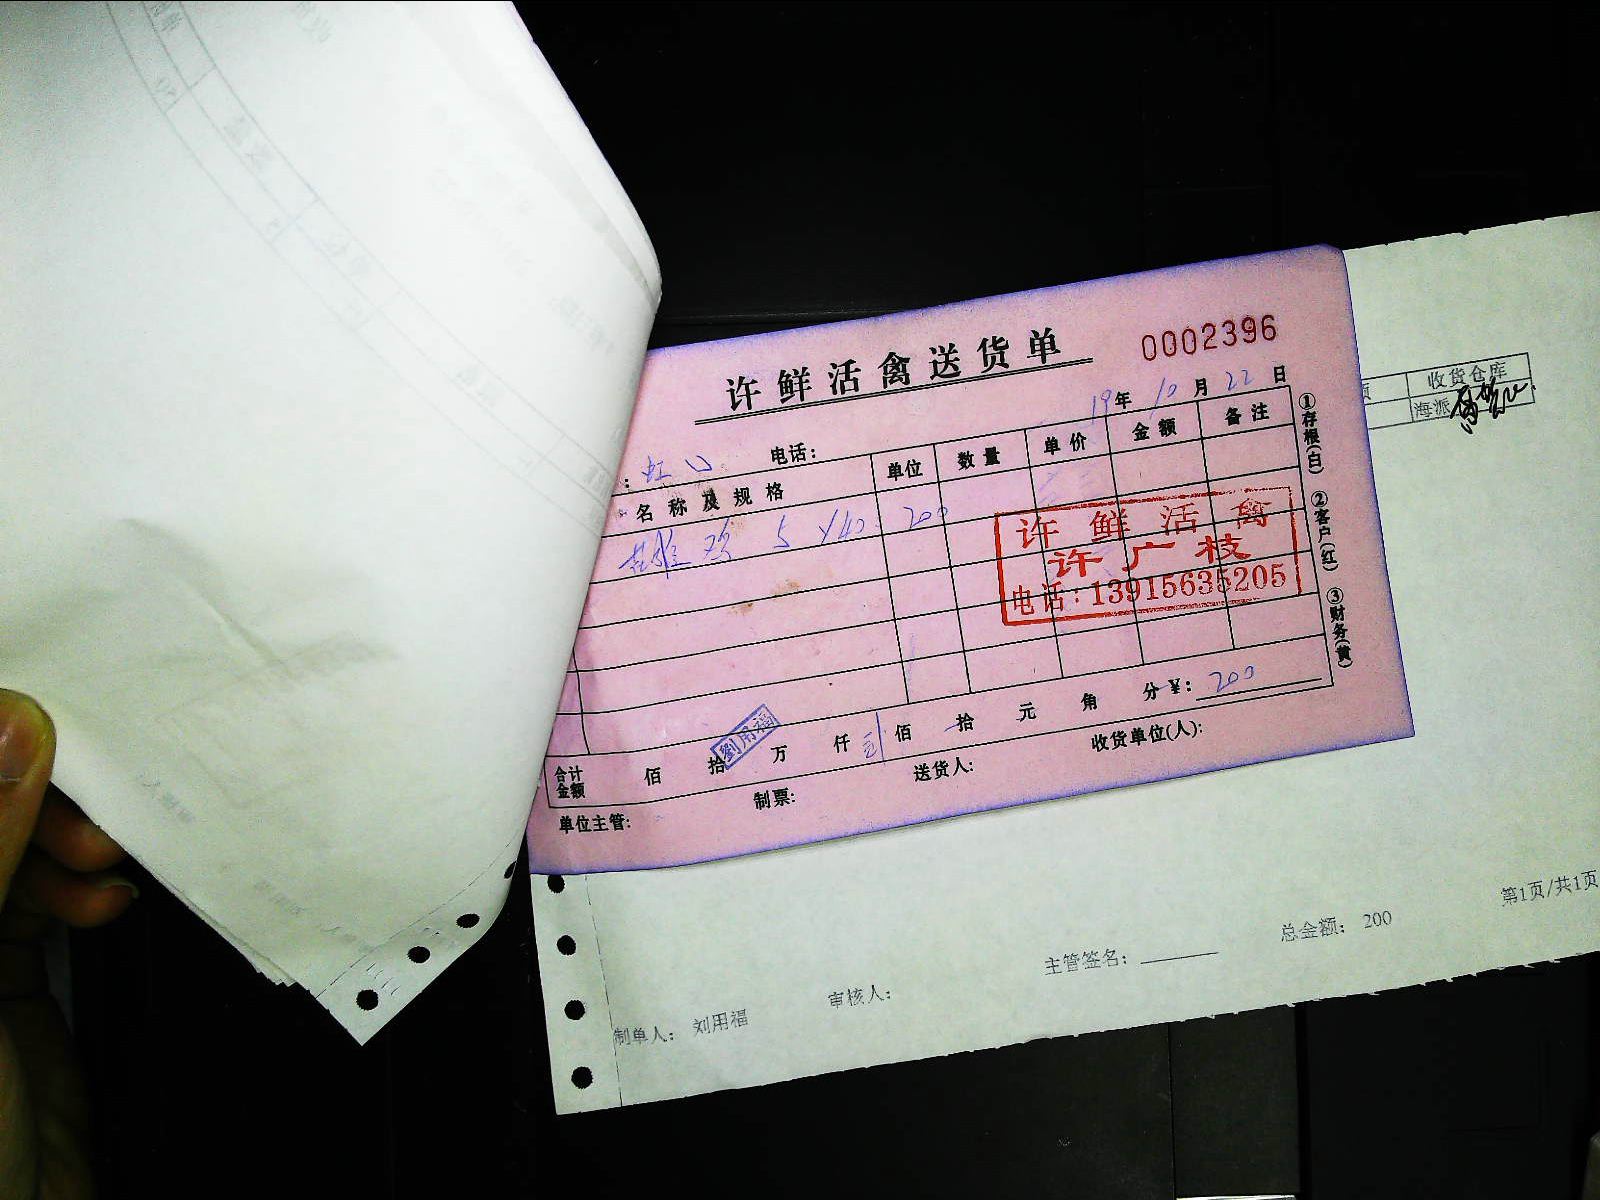 许鲜活禽送货单
0002396
19年10月22日
：虹口 电话：
名称及规格 单位 数量 单价 金额 备注
鸡 5 ×40 200
许鲜活禽
许广枝
电话：13915635205
①存根(白) ②客户(红) ③财务(黄)
合计金额 佰 拾 万 仟 佰 拾 元 角 分 ¥：200
劉用福
单位主管： 制票： 送货人： 收货单位(人)：
收货仓库
海派
第1页/共1页
制单人： 刘用福 审核人： 主管签名： 总金额： 200